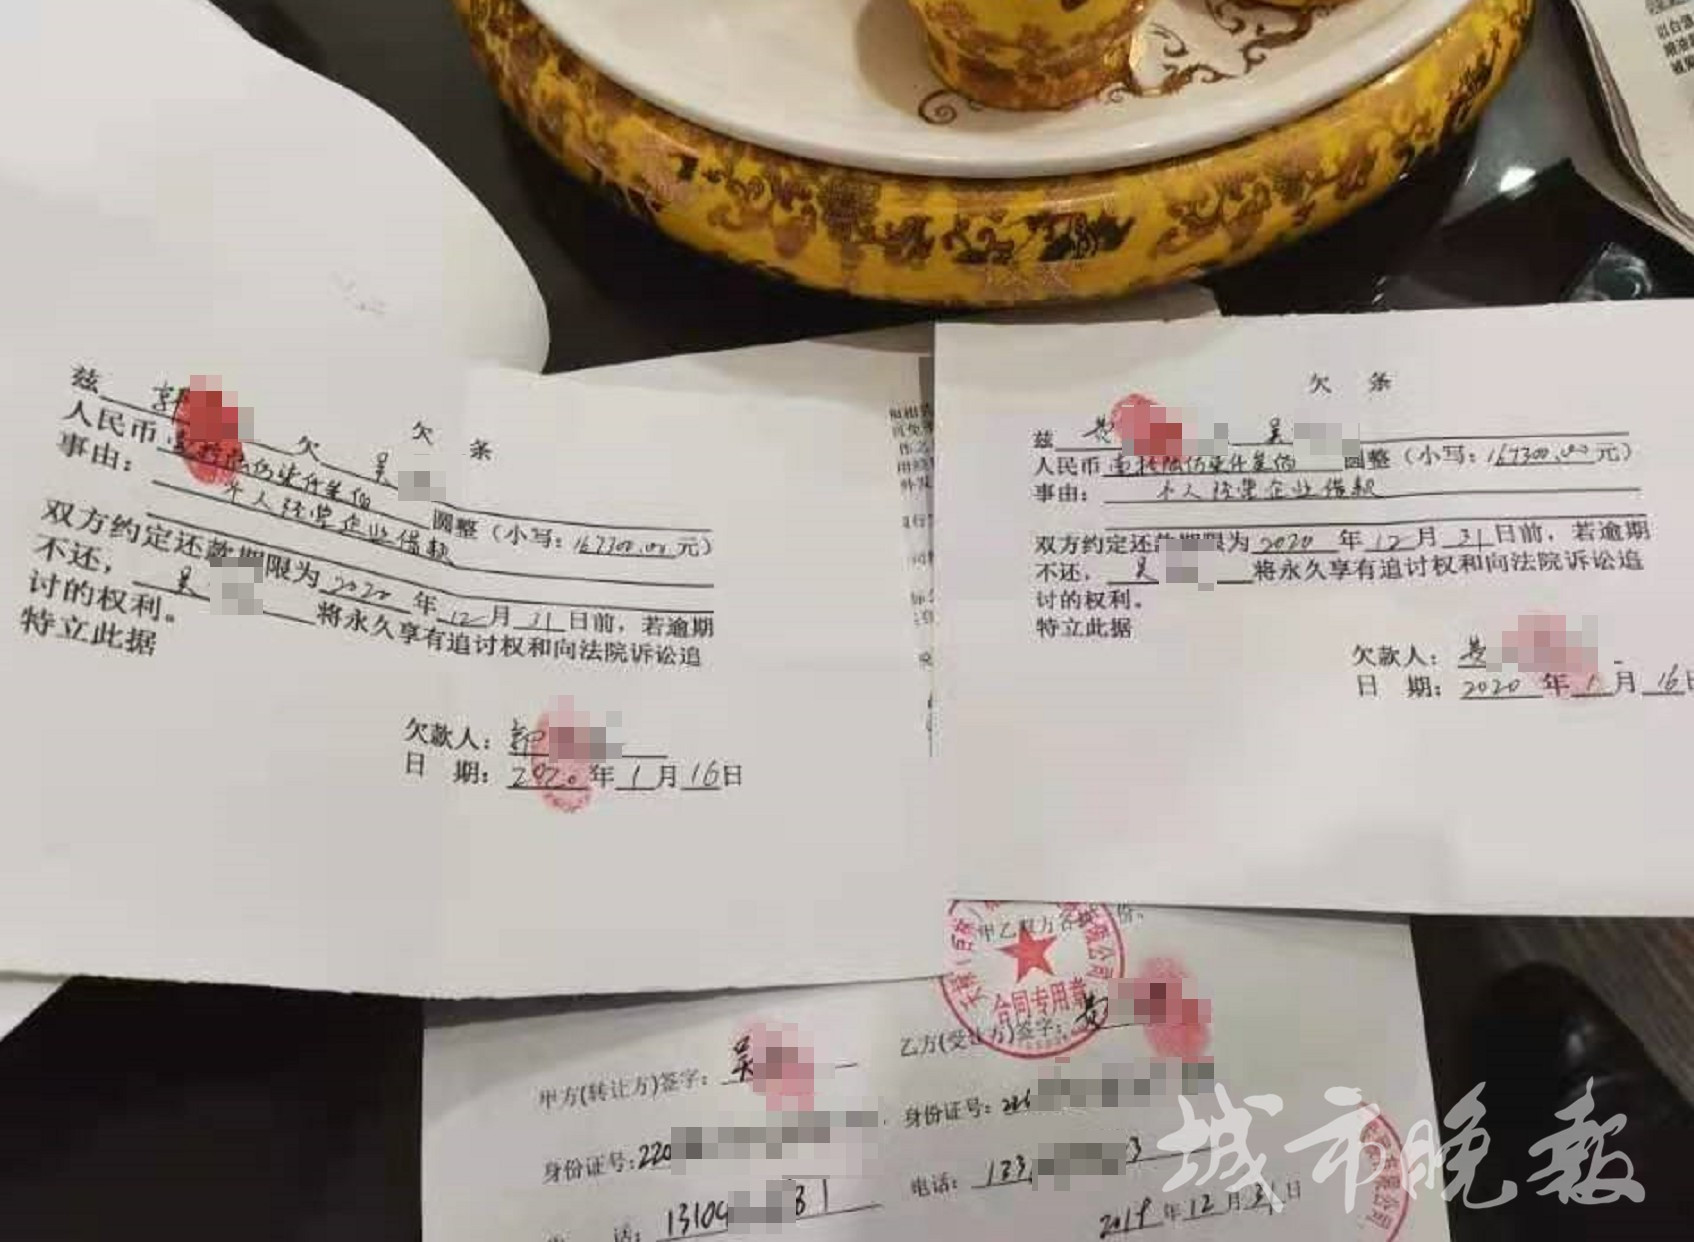 欠 条
兹 郭 欠 吴
人民币 壹拾陆万柒仟叁佰 圆整（小写：167300.00元）
事由： 个人经营企业借款
双方约定还款期限为 2020 年 12 月 31 日前，若逾期
不还， 吴 将永久享有追讨权和向法院诉讼追
讨的权利。
特立此据
欠款人： 郭
日 期： 2020 年 1 月 16 日
欠 条
兹 黄 吴
人民币 壹拾陆万柒仟叁佰 圆整（小写：167300.00元）
事由： 个人经营企业借款
双方约定还款期限为 2020 年 12 月 31 日前，若逾期
不还， 吴 将永久享有追讨权和向法院诉讼追
讨的权利。
特立此据
欠款人： 黄
日 期： 2020 年 1 月 16 日
甲乙双方各 份。
限公司
合同专用章
甲方(转让方)签字： 吴
乙方(受让方)签字： 黄
身份证号：220
身份证号：22
话： 1310 81
电话： 133 3
2019 年 12 月 31 日
限公司
城市晚报